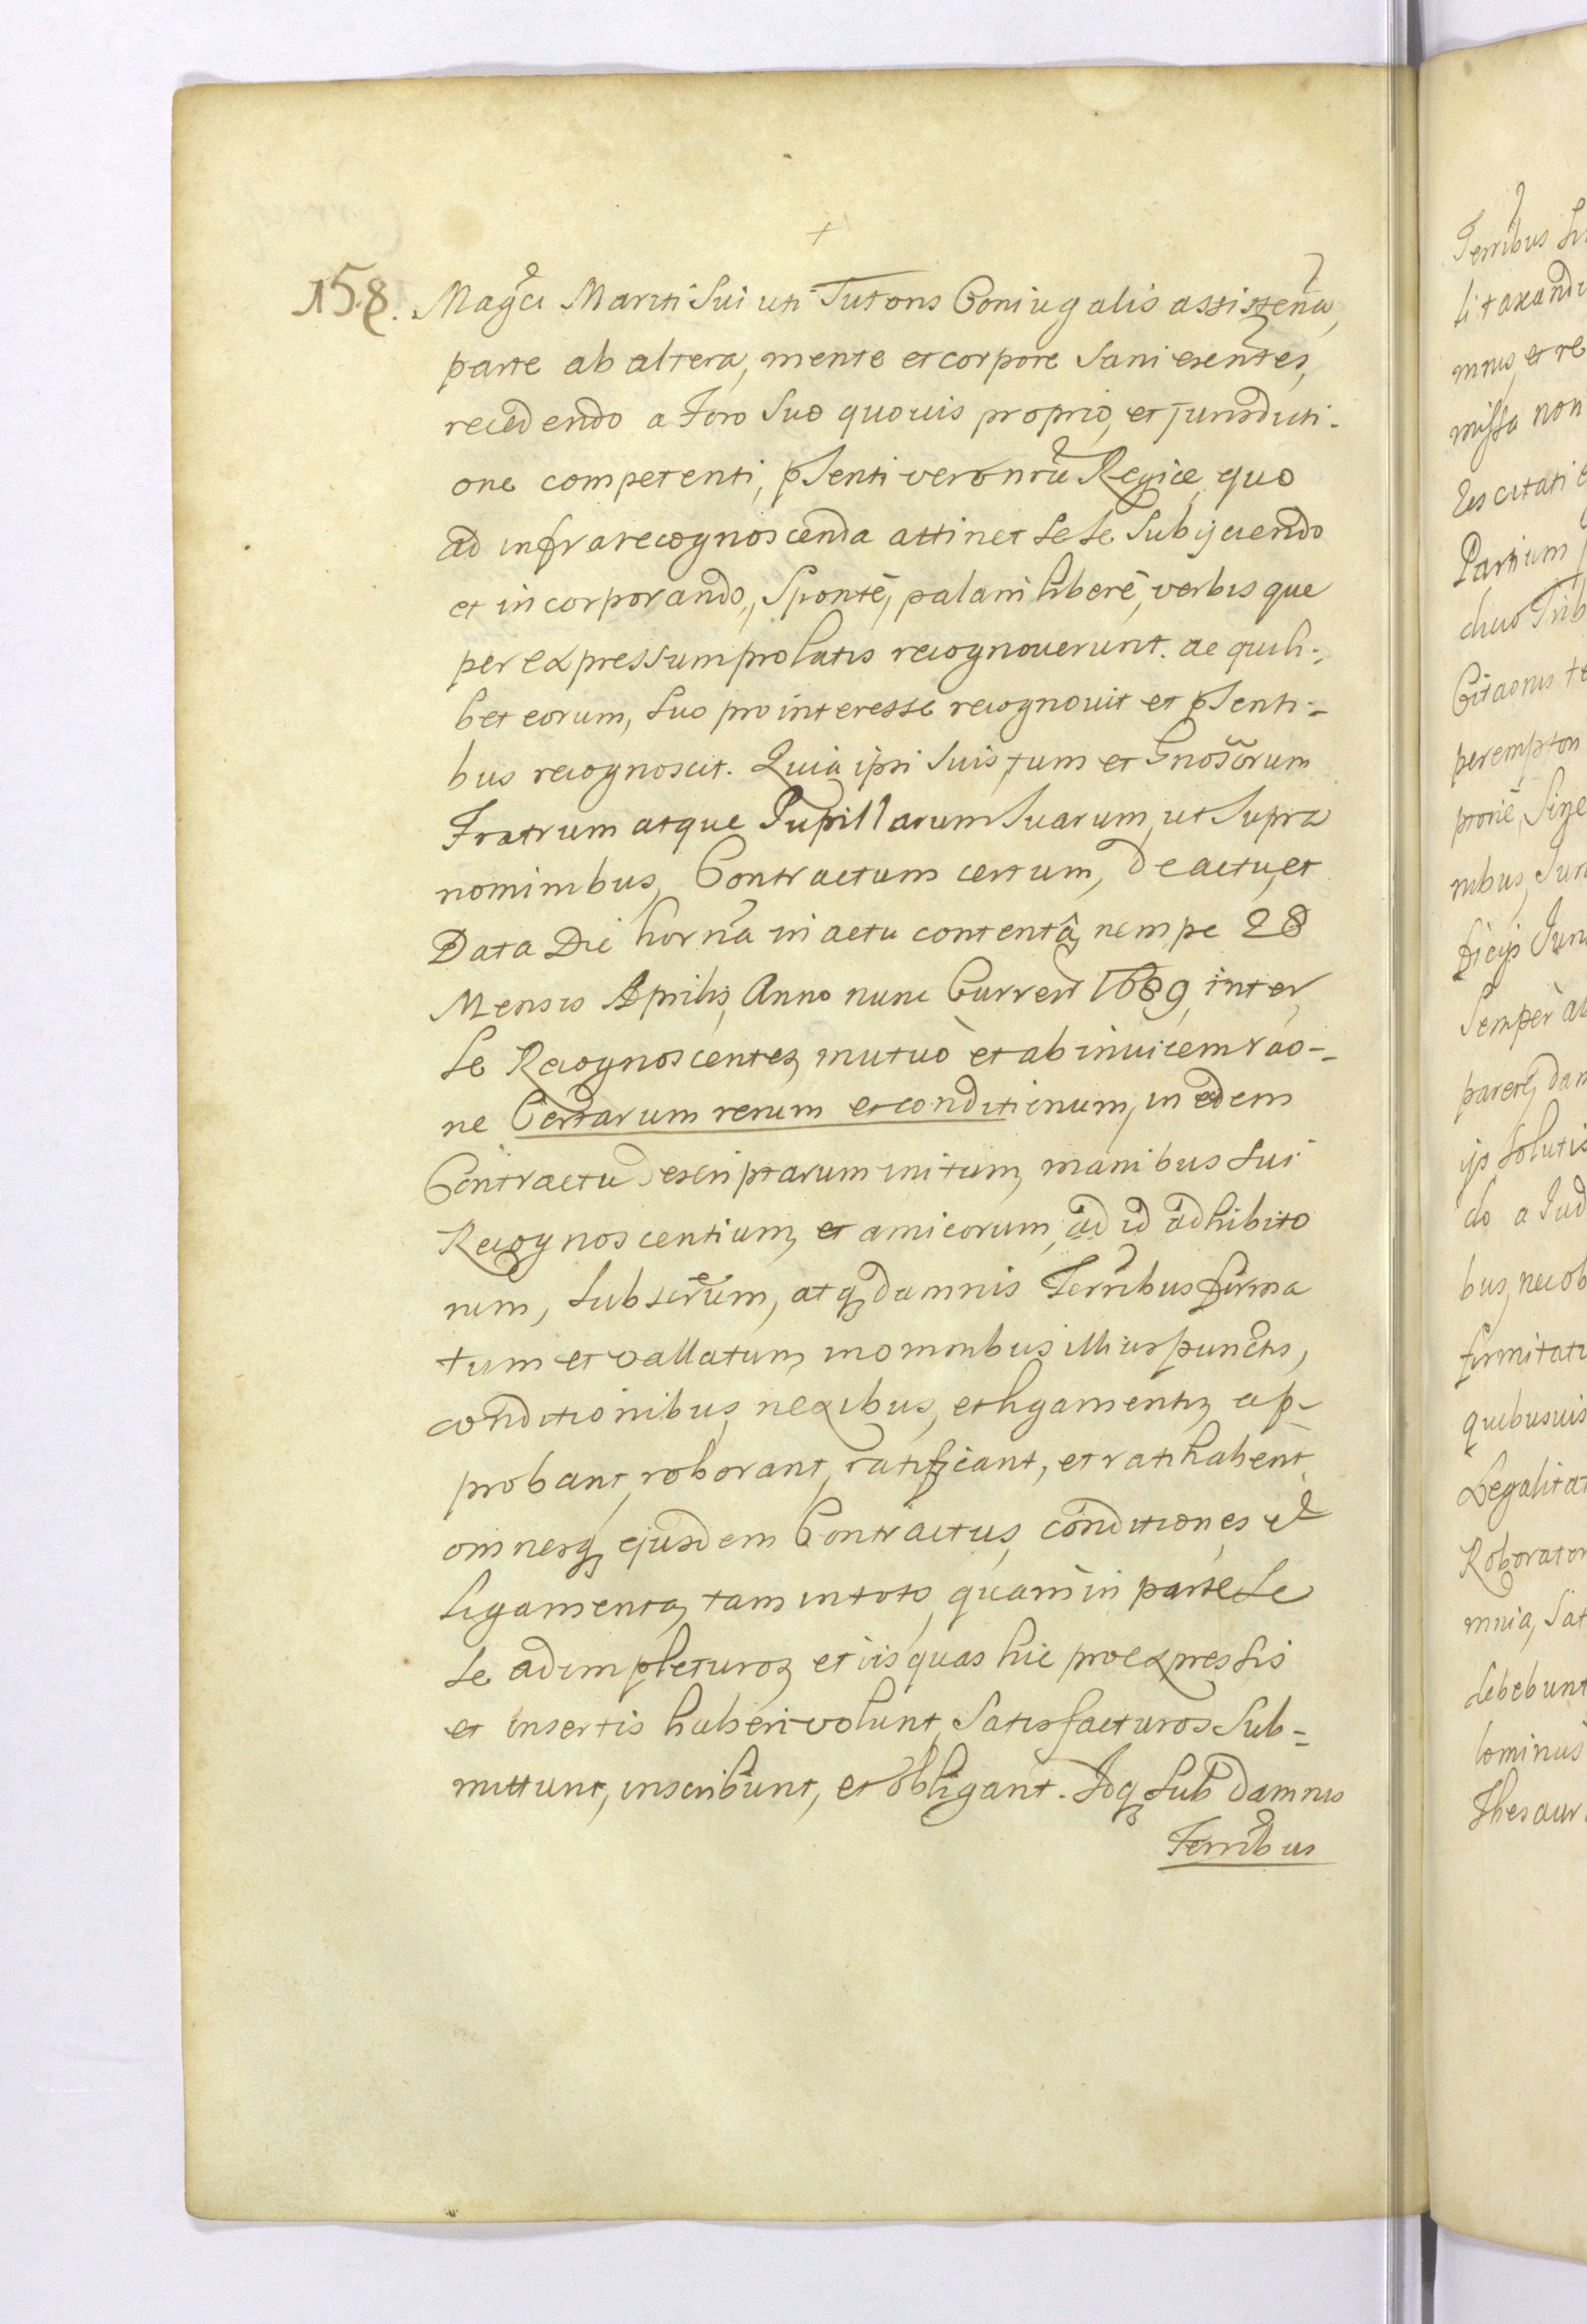 158.
Mag̃ci Mariti Sui uti Tutoris Coniugalis assisteña,
parte ab altera, mente et corpore Sani exeñtes,
recedendo a Foro Suo quovis proprio, et jurisdicti-
one competenti, pſenti vero nrũ Regiæ quo
ad infrarecognoscenda attinet Sese Subijciendo
et incorporando, Sponte, palam libere, verbisque
per expressum prolatis recognoverunt. ac quili-
bet eorum, Suo pro interesse recognovit et pſenti-
bus recognoscit. Quia ipsi Suis, tum et Gnosõrum
Fratrum atque Pupillarum Suarum, ut Supra
nominibus, Contractum certum, de actu, et
Data Die horña in actu contentâ, nempe 28
Mensis Aprilis, Anno nunc Curreñ 1689, inter
Se Recognoscentes, mutuò et ab invicem rao-
ne Certarum rerum et conditionum, in eodem
Contractu descriptarum initum, manibus Sui
Recognoscentium, et amicorum, ad id adhibito
rum, Subscr̃um, atq damnis Terr̃ibus firma
tum et vallatum, in omnibus illius punctis,
conditionibus, nexibus, et ligamentis, ap-
probant, roborant, ratificant, et ratihabent
omnesq ejusdem Contractus, conditiones et
Ligamenta, tam in toto, quam in parte Se
Se adimpleturos, et iis quas hic pro expressis
et insertis haberi volunt, Satisfacturos Sub-
mittunt, inscribunt, et obligant. Idq Sub damnis
Terr̃ibus
Terribus
mnus, et re
missa non
Partium
peremptor
Semper
firmitati
quibusvis
Legalitat
Roborator
mnia, Sat
debebunt
Thesaur